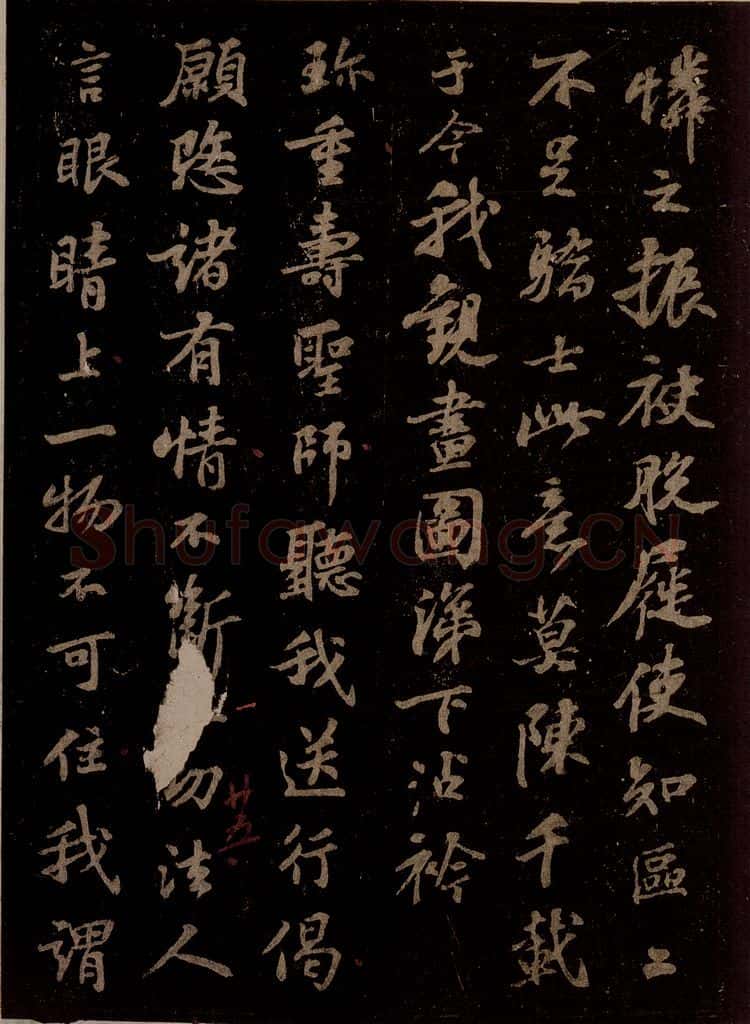 憐之振袂脫屣使知區々
不足驕士此意莫陳千載
于今我觀畫圖涕下沾衿
珎重壽聖師聽我送行偈
願愍諸有情不斷法人
言眼睛上一物不可住我謂
廿五
Shufawang.CN